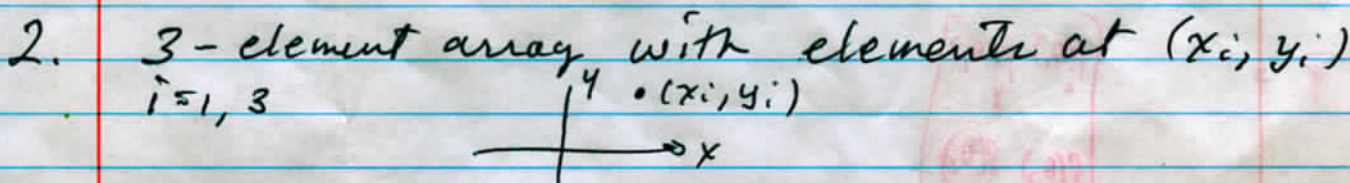 2. 3-element array with elements at (xi, yi)
i=1, 3 y •(xi, yi)
x